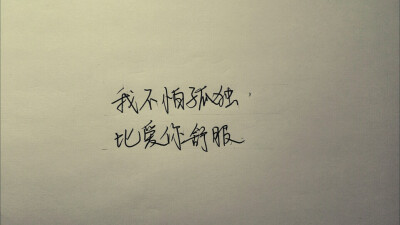 我不怕孤独，
比爱你舒服